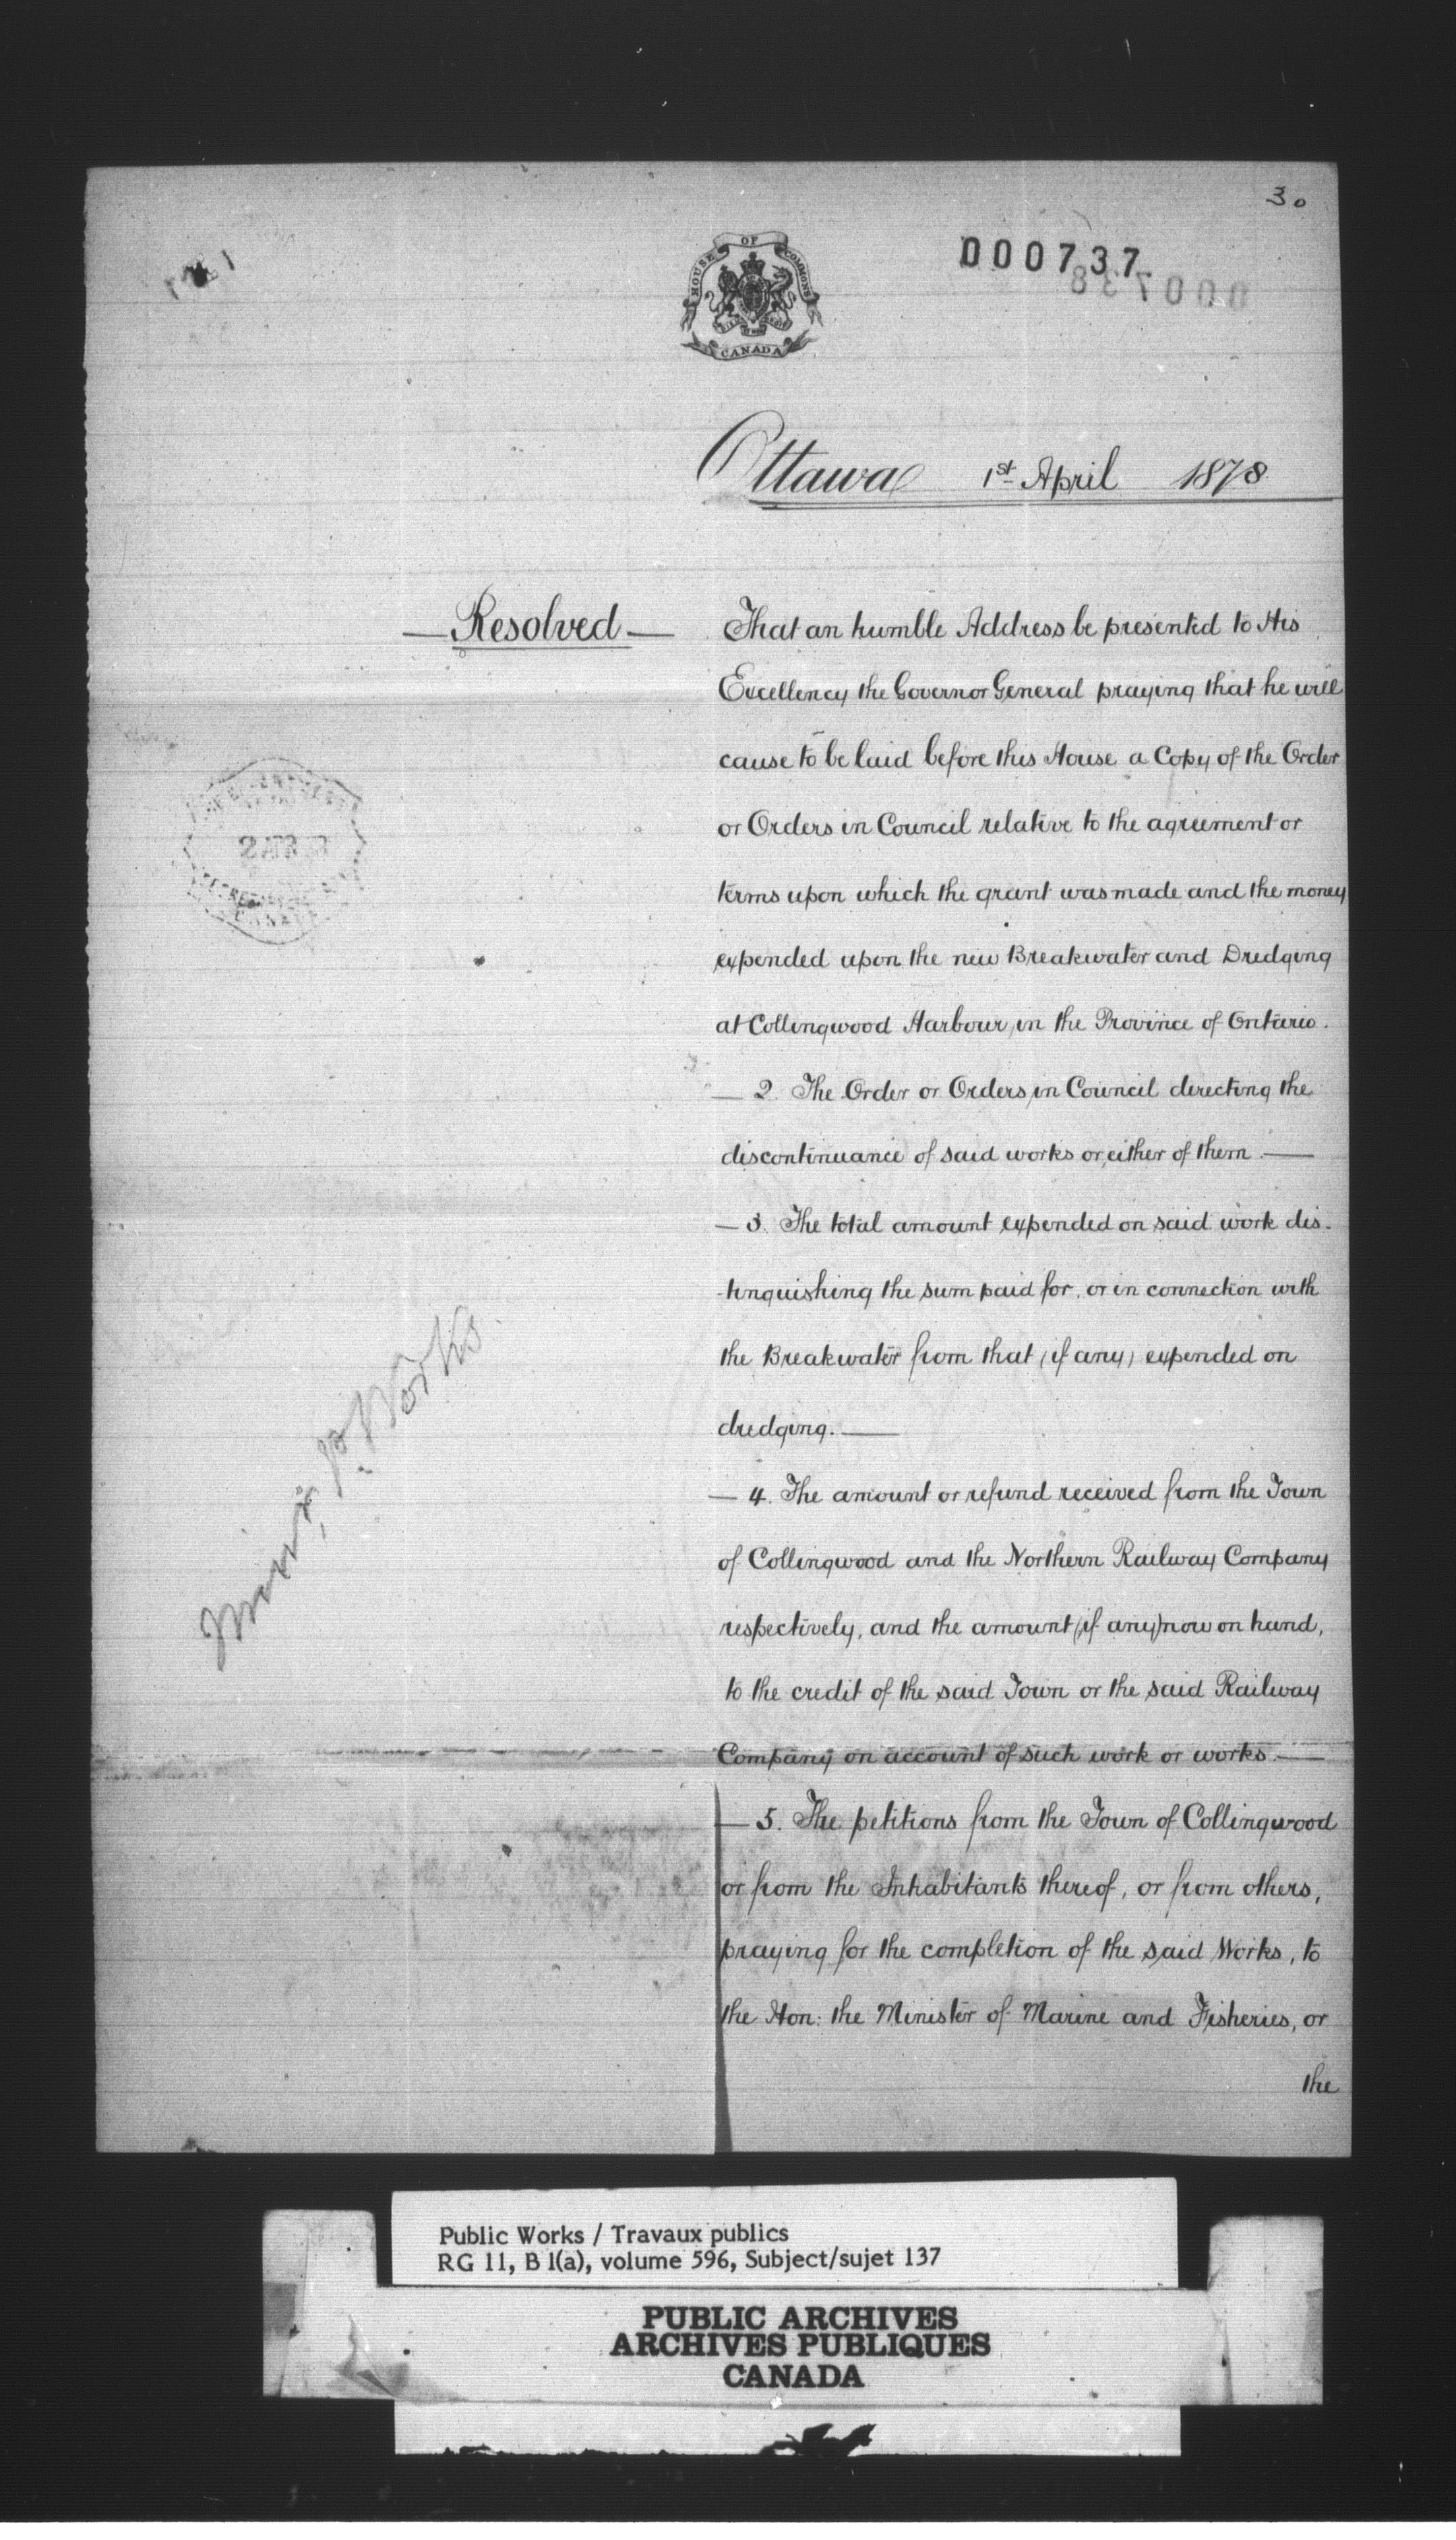 30
000737
000738
HOUSE OF COMMONS
CANADA
Ottawa 1st April 1878
— Resolved — That an humble Address be presented to His
Excellency the Governor General praying that he will
cause to be laid before this House a Copy of the Order
or Orders in Council relative to the agreement or
terms upon which the grant was made and the money
expended upon the new Breakwater and Dredging
at Collingwood Harbour, in the Province of Ontario.
— 2. The Order or Orders in Council directing the
discontinuance of said works or either of them. —
— 3. The total amount expended on said work dis-
-tinguishing the sum paid for, or in connection with
the Breakwater from that (if any) expended on
dredging. —
— 4. The amount or refund received from the Town
of Collingwood and the Northern Railway Company
respectively, and the amount (if any) now on hand,
to the credit of the said Town or the said Railway
Company on account of such work or works. —
— 5. The petitions from the Town of Collingwood
or from the Inhabitants thereof, or from others,
praying for the completion of the said Works, to
the Hon: the Minister of Marine and Fisheries, or
the
P. Works
CANADA
Public Works / Travaux publics
RG 11, B 1(a), volume 596, Subject/sujet 137
PUBLIC ARCHIVES
ARCHIVES PUBLIQUES
CANADA